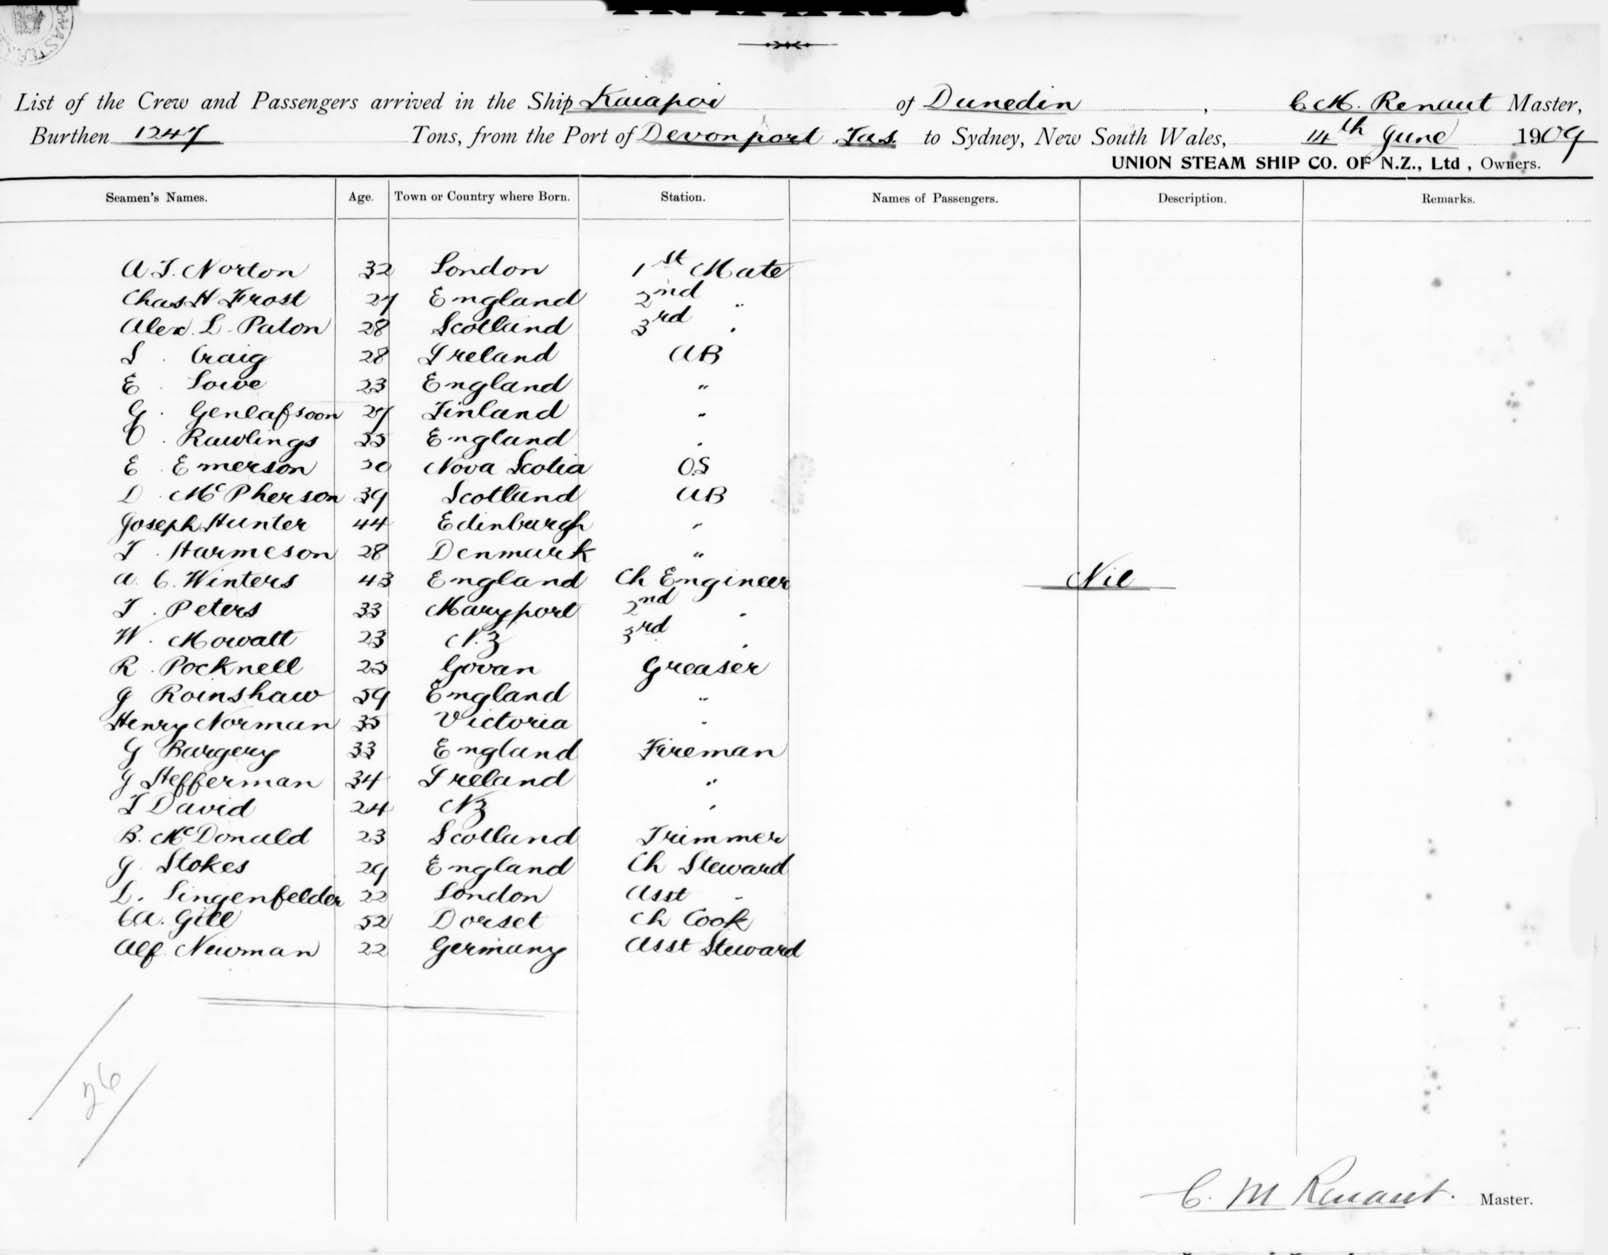 List of the Crew and Passengers arrived in the Ship Kaiapoi of Dunedin, C M. Renaut Master,
Burthen 1247 Tons, from the Port of Devonport Tas. to Sydney, New South Wales, 14th June 1909
UNION STEAM SHIP CO. OF N.Z., Ltd, Owners.
Seamen's Names. Age. Town or Country where Born. Station. Names of Passengers. Description. Remarks.
A T. Norton 32 London 1st Mate
Chas H Frost 27 England 2nd "
Alex. L. Paton 28 Scotland 3rd "
S. Craig 28 Ireland AB
E. Lowe 23 England "
G. Genlafsoon 27 Finland "
O. Rawlings 35 England "
E. Emerson 20 Nova Scotia OS
D. McPherson 39 Scotland AB
Joseph Hunter 44 Edinburgh "
T. Harmeson 28 Denmark "
A. C. Winters 43 England Ch Engineer Nil
T. Peters 33 Maryport 2nd "
W. Mowatt 23 N.Z 3rd "
R. Pocknell 25 Govan Greaser
J Roinshaw 39 England "
Henry Norman 35 Victoria "
G Bargery 33 England Fireman
J Hefferman 34 Ireland "
T David 24 NZ "
B. McDonald 23 Scotland Trimmer
J. Stokes 29 England Ch Steward
L. Lingenfelder 22 London Asst "
CA. Gill 52 Dorset Ch Cook
Alf Newman 22 Germany Asst Steward
26
C. M Renaut. Master.